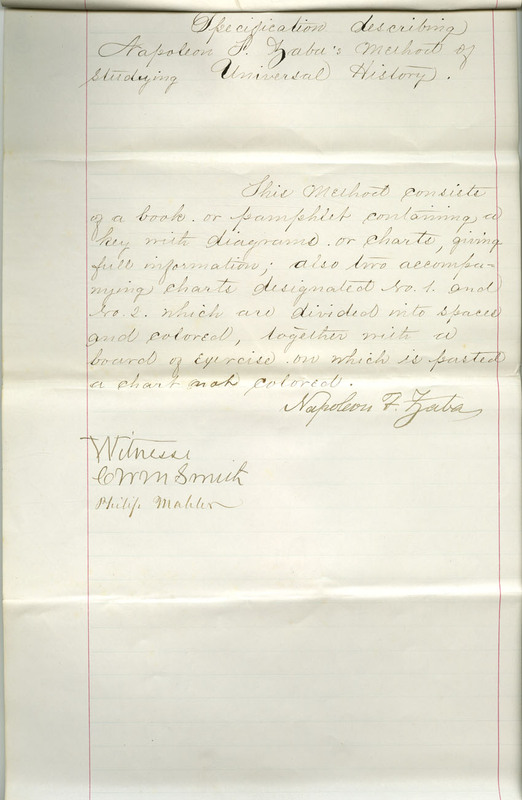 Specification describing
Napoleon F. Zaba's Method of
Studying Universal History.
This Method consists
of a book or pamphlet containing a
key with diagrams or charts, giving
full information; also two accompa-
nying charts designated No. 1. and
No. 2. which are divided into spaces
and colored, together with a
board of exercise on which is pasted
a chart not colored.
Napoleon F. Zaba
Witnesse
C W M Smith
Philip Mahler